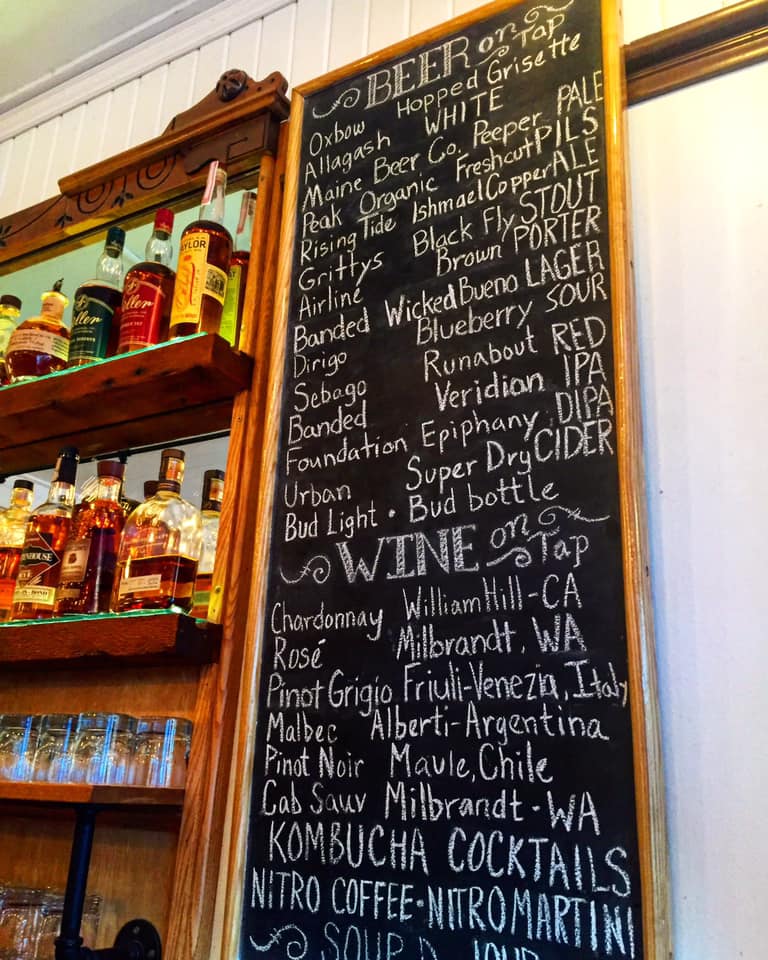 BEER on Tap
Oxbow Hopped Grisette
Allagash WHITE
Maine Beer Co. Peeper PALE
Peak Organic Freshcut PILS
Rising Tide Ishmael Copper ALE
Grittys Black Fly STOUT
Airline Brown PORTER
Banded Wicked Bueno LAGER
Dirigo Blueberry SOUR
Sebago Runabout RED
Banded Veridian IPA
Foundation Epiphany DIPA
Urban Super Dry CIDER
Bud Light • Bud bottle
WINE on Tap
Chardonnay William Hill - CA
Rosé Milbrandt, WA
Pinot Grigio, Friuli-Venezia, Italy
Malbec Alberti-Argentina
Pinot Noir Maule, Chile
Cab Sauv Milbrandt - WA
KOMBUCHA COCKTAILS
NITRO COFFEE • NITRO MARTINI
SOUP D
TAYLOR
eller
eller